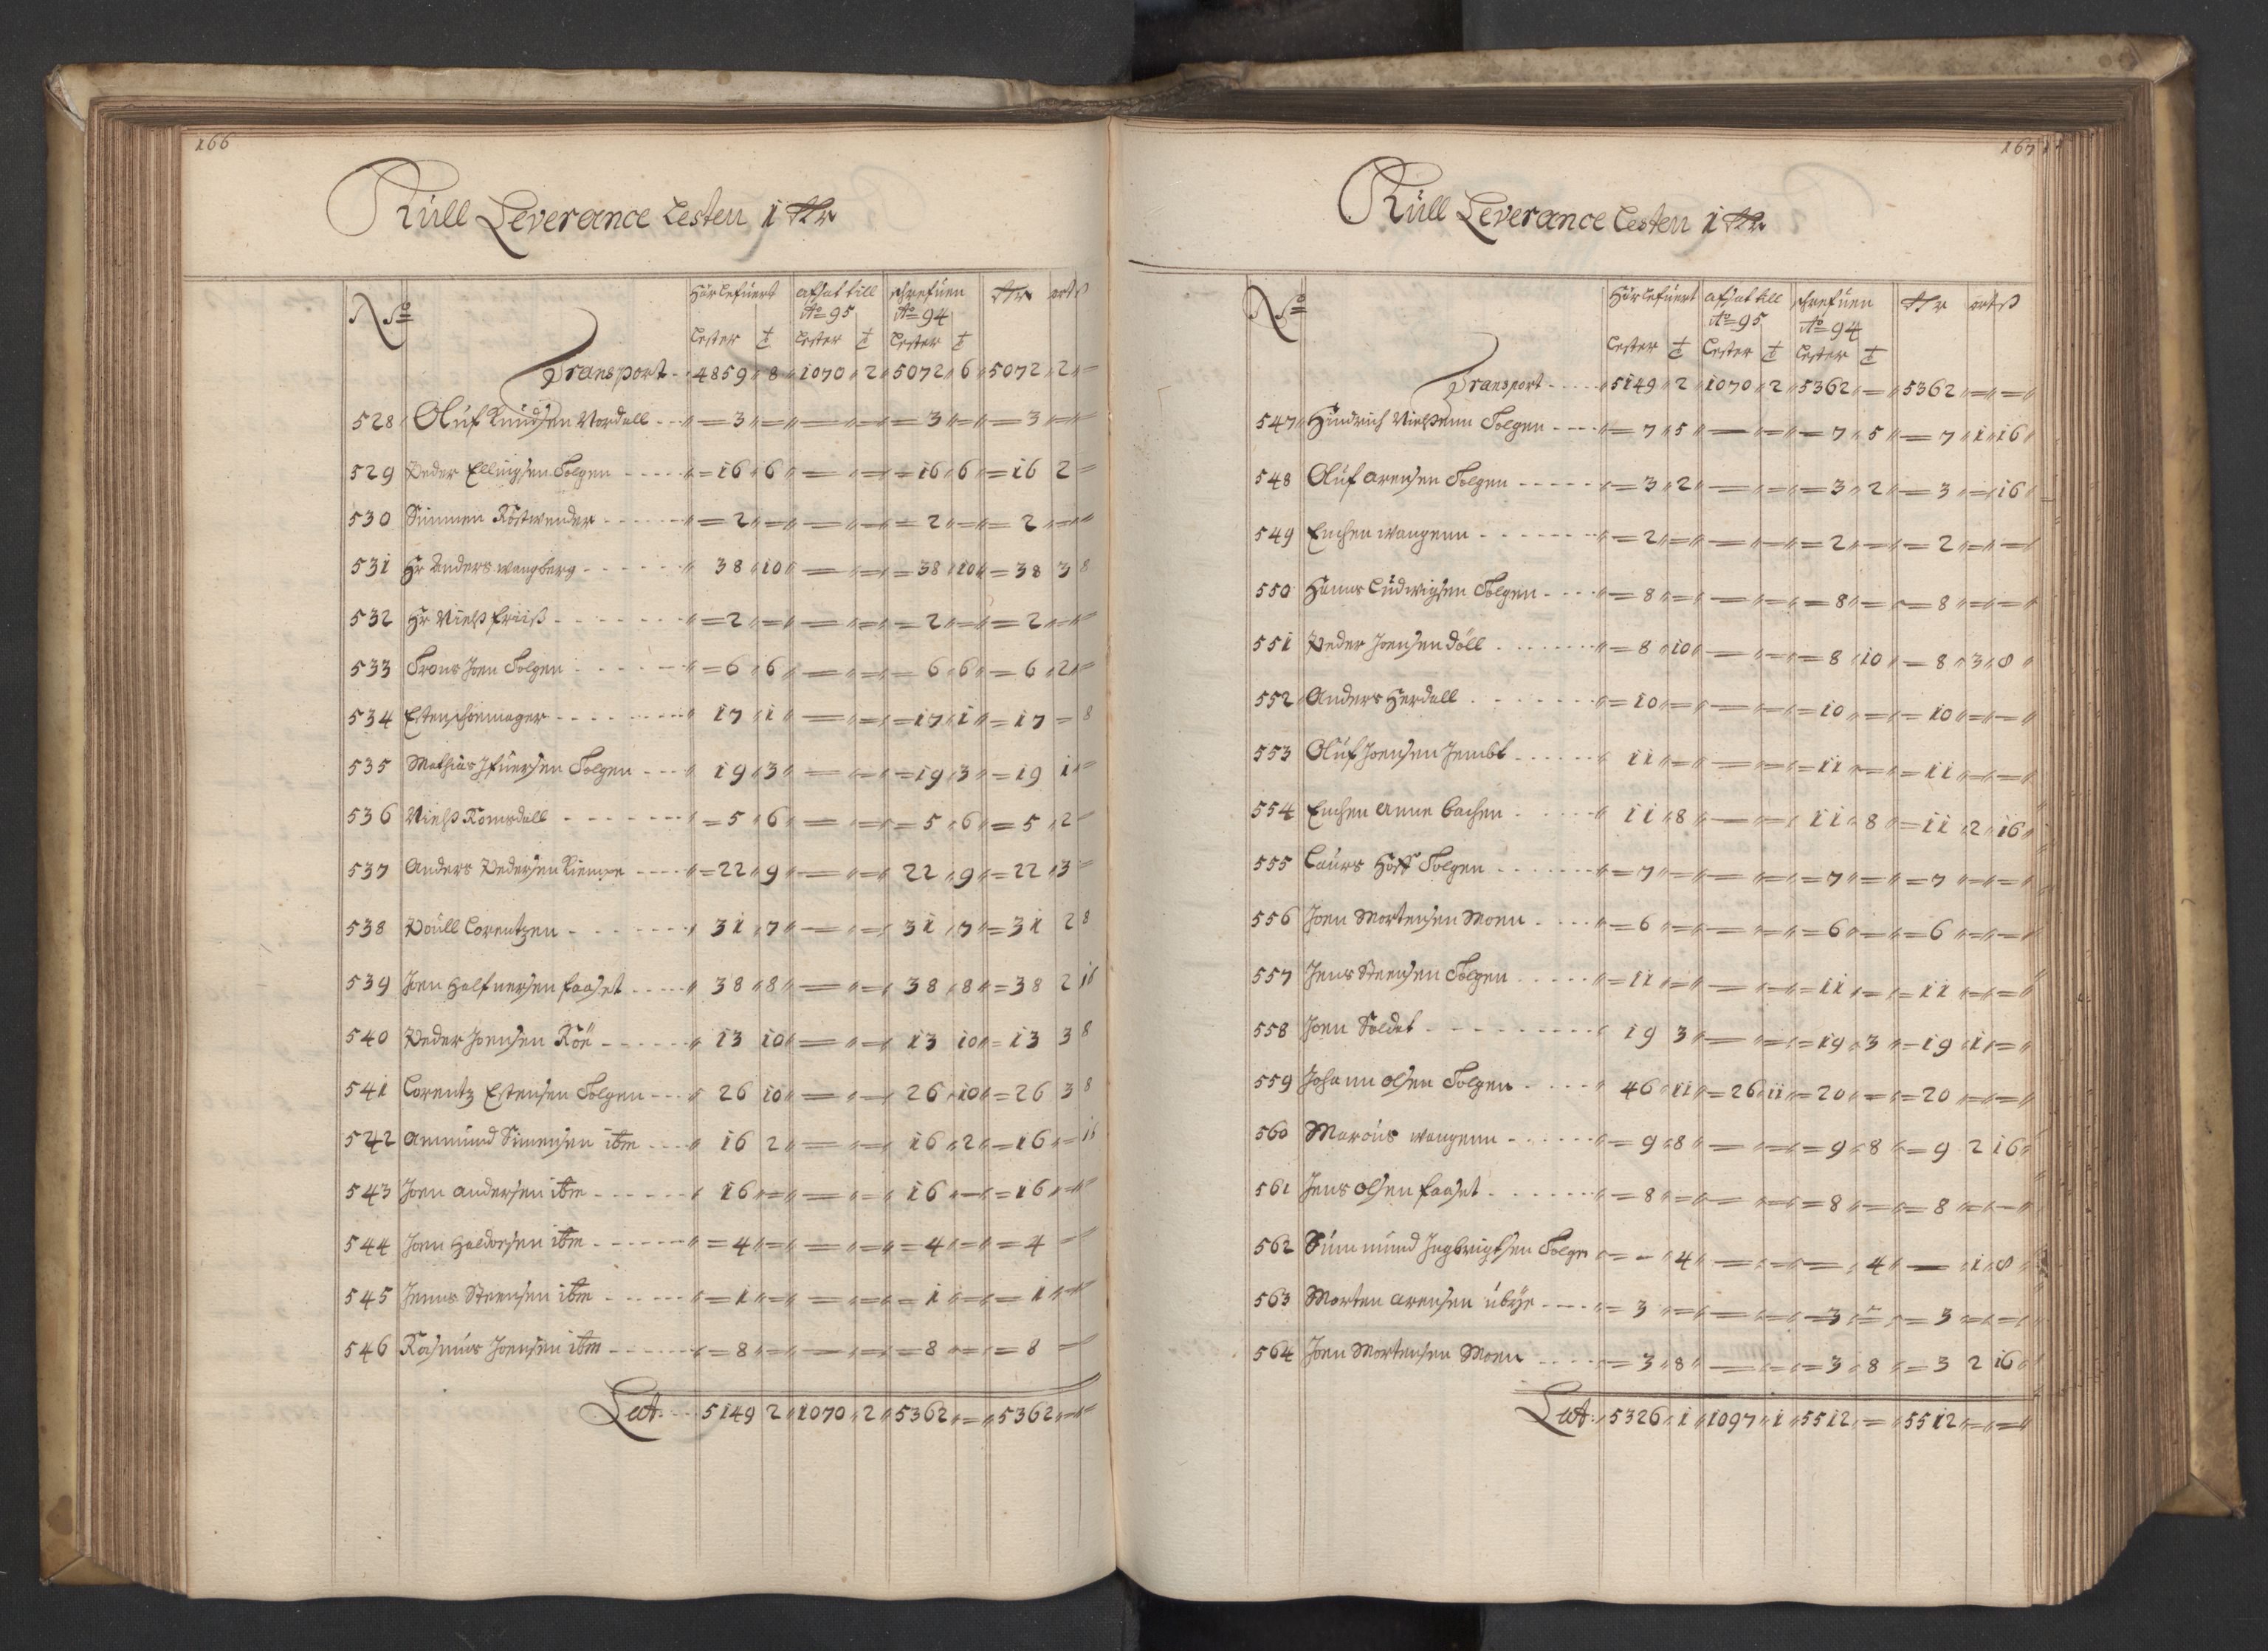 166
Kull Leverance Lesten 1 Rdr
No
Har lefuert afsat till schrefuen Rdr ort ß
Ao 95 Ao 94
Lester t Lester t Lester t
Transport 4859 8 1070 2 5072 6 5072 2 =
528 Oluf Knudsen Nordall = 3 = = = = 3 = = 3 = =
529 Peder Ellingsen Tolgen = 16 6 = = = 16 6 = 16 2 =
530 Simmen Röstwender = 2 = = = = 2 = = 2 = =
531 Hr Anders Wangberg 38 10 = = = 38 10 = 38 3 8
532 Hr Nielß friiß = 2 = = = = 2 = = 2 = =
533 Trons Joen Tolgen = 6 6 = = = 6 6 = 6 2 =
534 Esten schoemager 17 1 = = = 17 1 = 17 = 8
535 Mathias Ifuersen Tolgen 19 3 = = = 19 3 = 19 1 =
536 Nielß Romsdall = 5 6 = = = 5 6 = 5 2 =
537 Anders Pedersen Kiempe = 22 9 = = 22 9 = 22 3 =
538 Poull Lorentzen 31 7 = = 31 7 = 31 2 8
539 Joen Halfuersen faaset 38 8 = = 38 8 = 38 2 16
540 Peder Joensen Röe 13 10 = = 13 10 = 13 3 8
541 Lorentz Estensen Tolgen 26 10 = = 26 10 = 26 3 8
542 Ammund Simensen ibm 16 2 = = 16 2 = 16 = 16
543 Joen Andersen ibm 16 = = = 16 = = 16 = =
544 Joen Haldorsen ibm = 4 = = = = 4 = = 4 =
545 Jenns Steensen ibm = 1 = = = = 1 = = 1 = =
546 Rasmus Joensen ibm = 8 = = = = 8 = = 8 =
Lat. 5149 2 1070 2 5362 = 5362 = =
167
Kull Leverance Lesten 1 Rdr
No
Har lefuert afsat till schrefuen Rdr ort ß
Ao 95 Ao 94
Lester t Lester t Lester t
Transport 5149 2 1070 2 5362 = 5362 = =
547 Hindrich Nielsenn Tolgen = 7 5 = = = 7 5 = 7 1 16
548 Oluf Arensen Tolgen = 3 2 = = = 3 2 = 3 = 16
549 Enchen Wangenn = 2 = = = = 2 = = 2 = =
550 Hanns Ludwigsen Tolgen = 8 = = = = 8 = = 8 = =
551 Peder Joensen Döll = 8 10 = = = 8 10 = 8 3 8
552 Anders Herdall = 10 = = = = 10 = = 10 = =
553 Oluf Joensen Jembt 11 = = = = 11 = = 11 = =
554 Enchen Anne bachen 11 8 = = 11 8 = 11 2 16
555 Laurs Hoff Tolgen = 7 = = = = 7 = = 7 = =
556 Joen Mortensen Moen = 6 = = = = 6 = = 6 = =
557 Jens Steensen Tolgen = 11 = = = = 11 = = 11 = =
558 Joen Soldat 19 3 = = = 19 3 = 19 1 =
559 Johann Olsen Tolgen 46 11 = 26 11 = 20 = = 20 = =
560 Marcus Wangenn = 9 8 = = = 9 8 = 9 2 16
561 Jens Olsen faaset = 8 = = = = 8 = = 8 = =
562 Simmund Ingbrigtsen Tolgn = = 4 = = = 4 = 1 8
563 Morten Arensen übÿe = 3 = = = = 3 = = 3 = =
564 Joen Mortensen Moen = 3 8 = = = 3 8 = 3 2 16
Lat. 5326 1 1097 1 5512 = 5512 = =